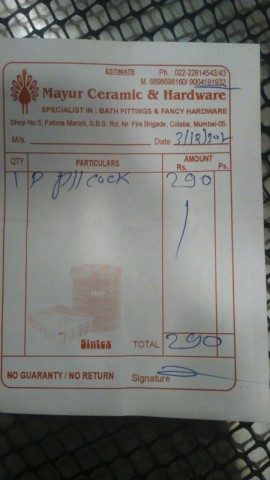 ESTIMATE
Ph.: 022-22814542/43
M. 8898698160/ 9004191932
Mayur Ceramic & Hardware
SPECIALIST IN : BATH FITTINGS & FANCY HARDWARE
Shop No.5, Fatima Manzil, S.B.S. Rd, Nr. Fire Brigade, Colaba, Mumbai-05.
M/s. Date 3/12/202
QTY. PARTICULARS AMOUNT
Rs. Ps.
1 P P// cock 290
Sintex TOTAL 290
NO GUARANTY / NO RETURN Signature